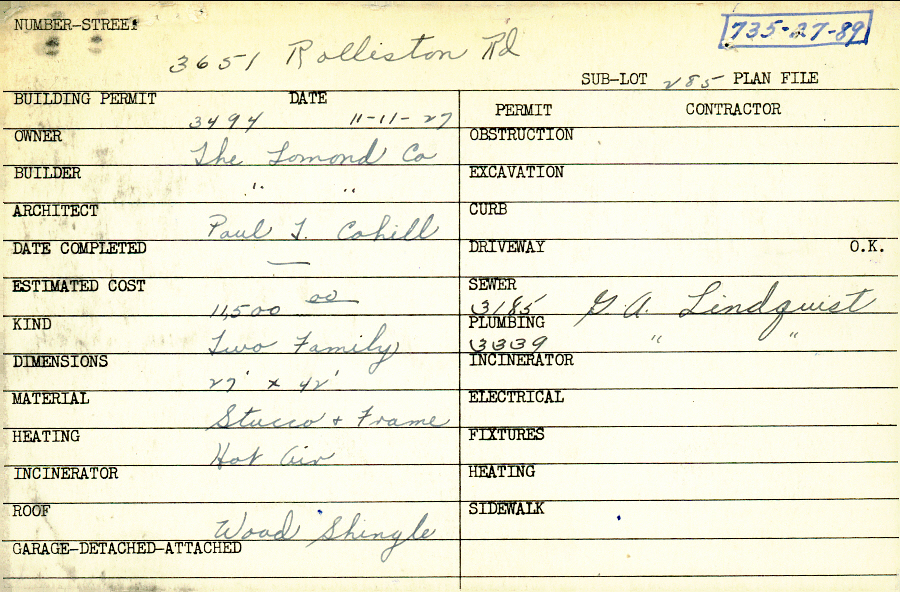 NUMBER-STREET
735-27-89
3651 Rolliston Rd
SUB-LOT 285 PLAN FILE
BUILDING PERMIT DATE
3494 11-11-27
OWNER
The Lomond Co
BUILDER
" "
ARCHITECT
Paul T. Cahill
DATE COMPLETED
—
ESTIMATED COST
11,500 00
KIND
Two Family
DIMENSIONS
27' x 42'
MATERIAL
Stucco + Frame
HEATING
Hot Air
INCINERATOR
ROOF
Wood Shingle
GARAGE-DETACHED-ATTACHED
PERMIT CONTRACTOR
OBSTRUCTION
EXCAVATION
CURB
DRIVEWAY O.K.
SEWER
3185 G. A. Lindquist
PLUMBING
3339 " "
INCINERATOR
ELECTRICAL
FIXTURES
HEATING
SIDEWALK